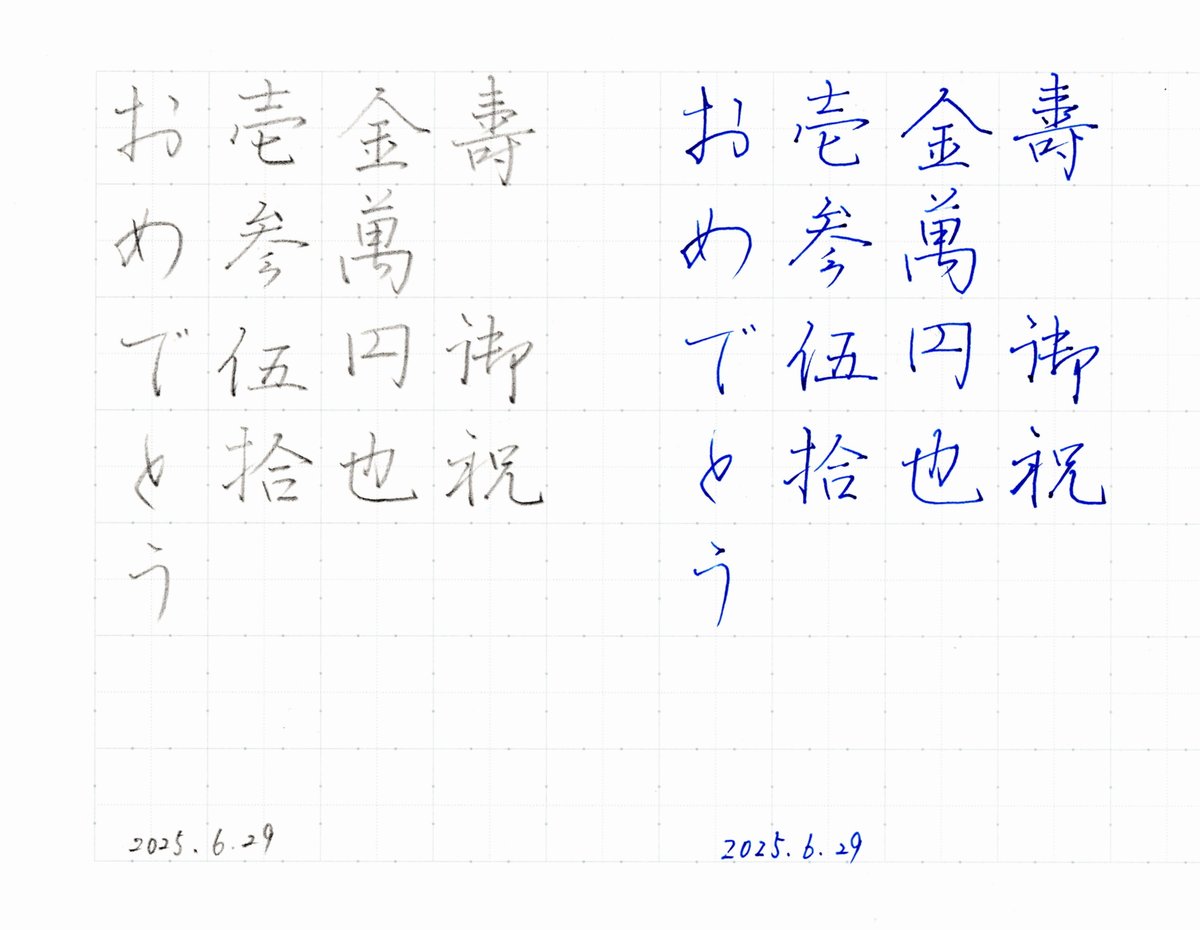 壽 御祝
金萬円也
壱参伍拾
おめでとう
2025.6.29
壽 御祝
金萬円也
壱参伍拾
おめでとう
2025.6.29